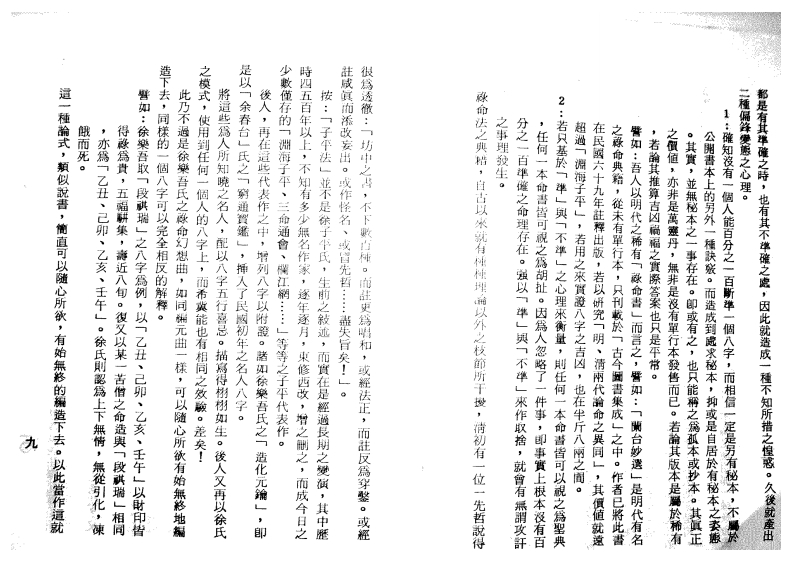 都是有其準確之時，也有其不準確之處，因此就造成一種不知所措之惶惑。久後就產出
二種偏鋒變態之心理。
1：確知沒有一個人能百分之一百斷準一個八字，而相信一定是另有秘本，不屬於
公開書本上的另外一種訣竅。而造成到處求秘本，抑或是自居於有秘本之姿態
。其實，並無秘本之一事存在。卽或有之，也只能稱之爲孤本或抄本。其眞正
之價値，亦非是萬靈丹，無非是沒有單行本發售而已。若論其版本是屬於稀有
，若論其推算吉凶禍福之實際答案也只是平常。
譬如：吾人以明代之稀有「祿命書」而言之，譬如：「蘭台妙選」是明代有名
之祿命典籍，從未有單行本，只刊載於「古今圖書集成」之中。作者已將此書
在民國六十九年註釋出版，若以硏究「明、淸兩代論命之異同」，其價値就遠
超過「淵海子平」，若用之來實證八字之吉凶，也在半斤八兩之間。
2：若只基於「準」與「不準」之心理來衡量，則任何一本命書皆可以視之爲聖典
，任何一本命書皆可視之爲胡扯。因爲人忽略了一件事，卽事實上根本沒有百
分之一百準確之命理存在。强以「準」與「不準」來作取捨，就會有無謂攻訐
之事理發生。
祿命法之典籍，自古以來就有種種理論以外之枝節所干擾，淸初有一位一先哲說得
很爲透徹：「坊中之書，不下數百種。而註更爲唱和，或經法正，而註反爲穿鑿。或經
註咸眞而添改妄出。或作怪名、或冒先哲……盡失旨矣！」。
按：「子平法」並不是徐子平氏，生前之敍述，而實在是經過長期之變演，其中歷
時四五百年以上，不知有多少無名作家，逐年逐月，東修西改，增之刪之，而成今日之
少數僅存的「淵海子平、三命通會、欄江網……」等等之子平代表作。
後人，再在這些代表作之中，增列八字以附證。諸如徐樂吾氏之「造化元鑰」，卽
是以「余春台」氏之「窮通寶鑑」，揷入了民國初年之名人八字。
將這些爲人所知曉之名人，配以八字五行喜忌。描寫得栩栩如生。後人又再以徐氏
之模式，使用到任何一個人的八字上，而希冀能也有相同之效驗。差矣！
此乃不過是徐樂吾氏之祿命幻想曲，如同編元曲一樣，可以隨心所欲有始無終地編
造下去，同樣的一個八字可以完全相反的解釋。
譬如：徐樂吾取「段祺瑞」之八字爲例，以「乙丑、己卯、乙亥、壬午」以財印皆
得祿爲貴，五福駢集，壽近八旬。復又以某一苦僧之命造與「段祺瑞」相同
，亦爲「乙丑、己卯、乙亥、壬午」。徐氏則認爲上下無情，無從引化，凍
餓而死。
這一種論式，類似說書，簡直可以隨心所欲，有始無終的編造下去。以此當作這就
九